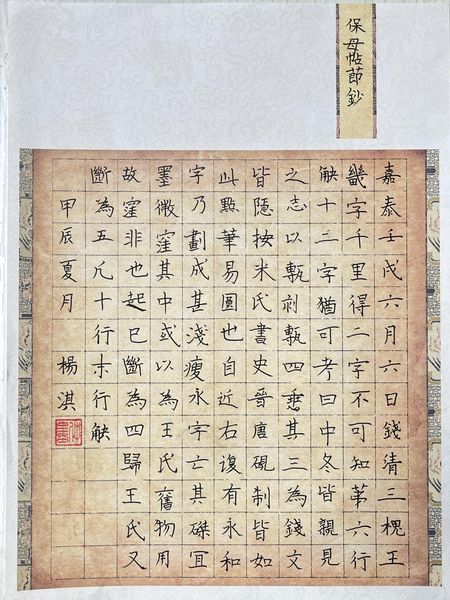 保母帖節鈔
嘉泰壬戌六月六日錢清三槐王
畿字千里得二字不可知第六行
缺十三字猶可考曰中冬皆親見
之志以甎刻甎四垂其三為錢文
皆隱按米氏書史晉唐硯制皆如
此點筆易圓也自近右復有永和
字乃劃成甚淺瘦永字亡其磔冝
墨微窪其中或以為王氏舊物用
故窪非也起已斷為四歸王氏又
斷為五凡十行末行缺
甲辰夏月 楊淇